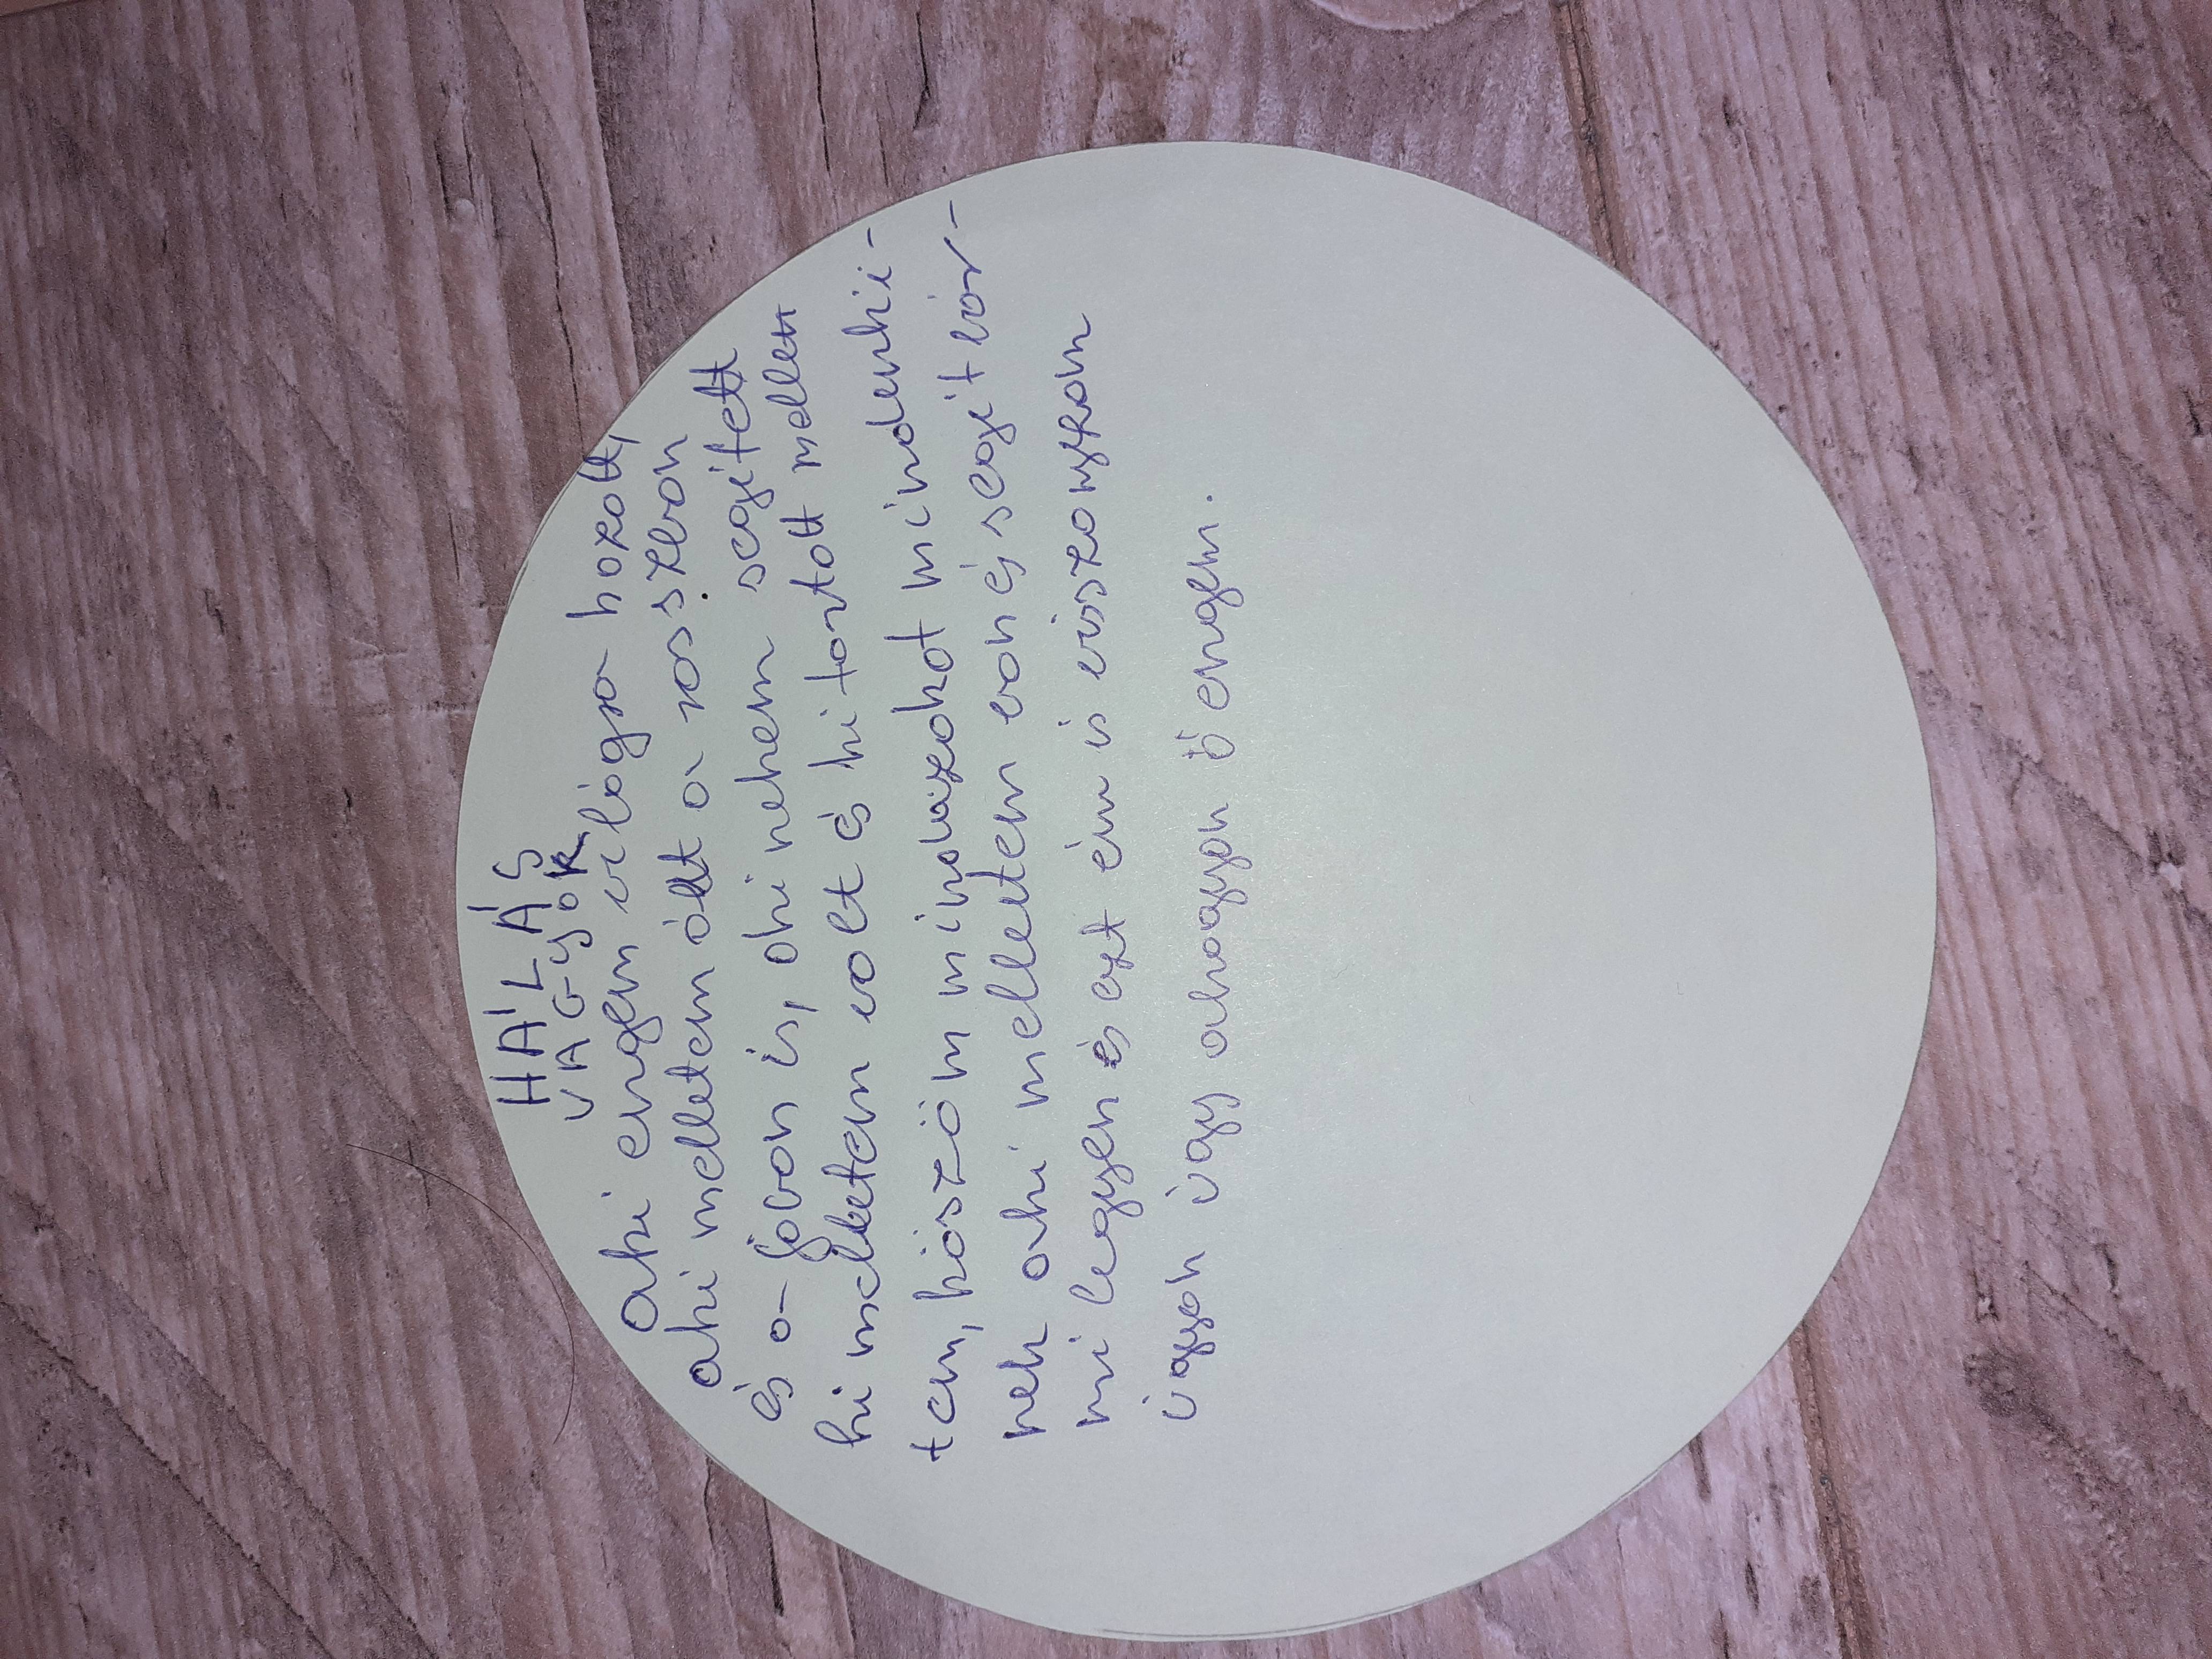 HÁLÁS
VAGYOK
aki engem világra hozott,
aki melletem állt a rosszban
és a jóban is, aki nekem segített
ki melletem volt és ki tartott mellet-
tem, köszönöm mindazokat mindenki-
nek aki mellettem van és segít bár-
mi legyen és ezt én is viszonyzom
úgyan úgy ahogyan ő engem.